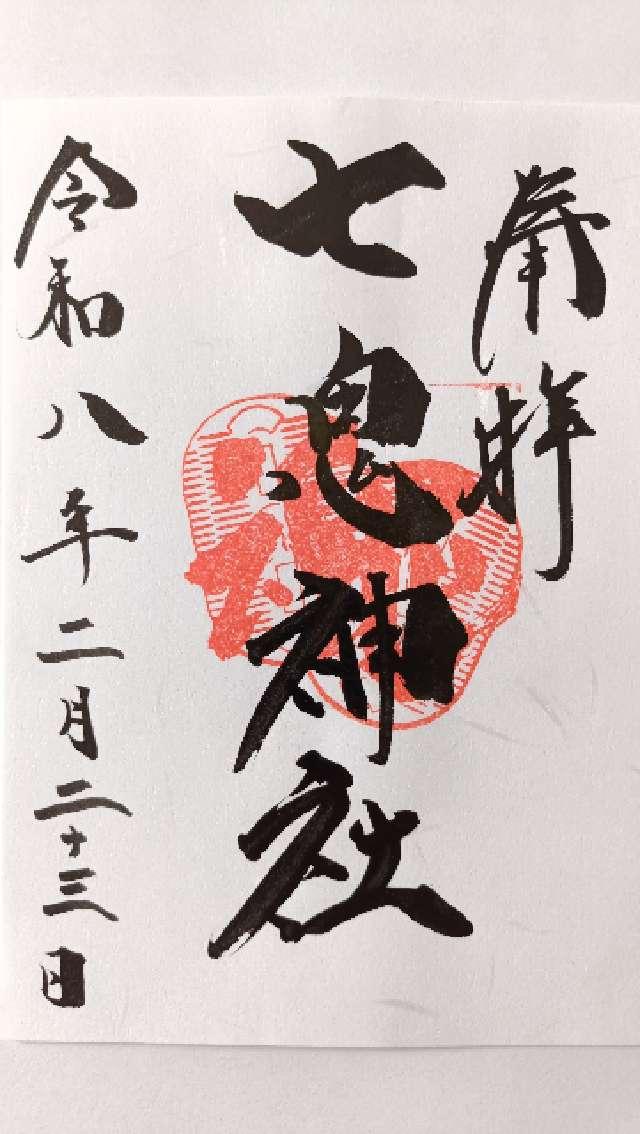 奉拝
七鬼神社
令和八年二月二十三日